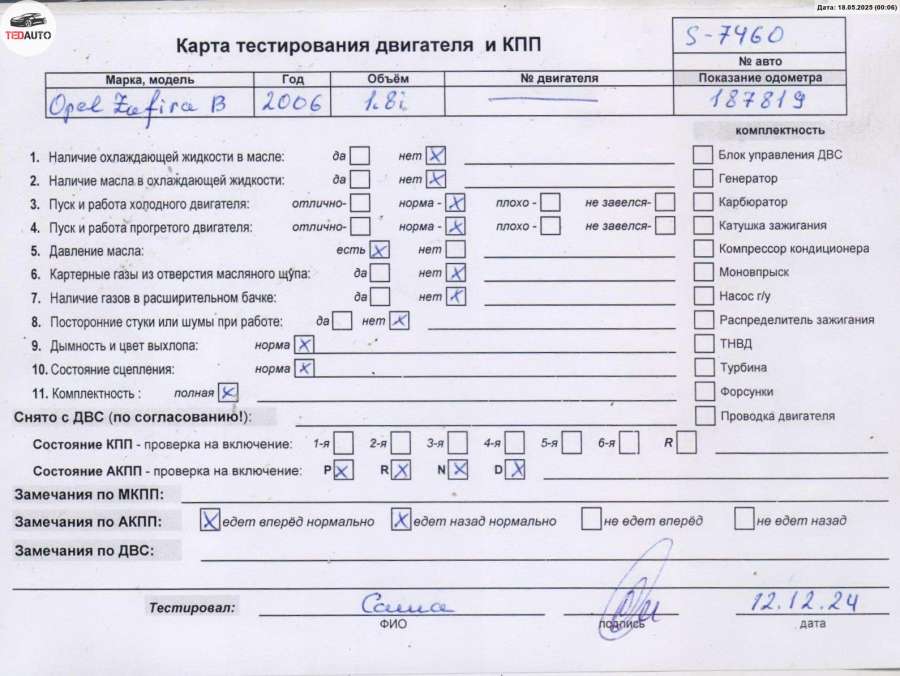 Дата: 18.05.2025 (00:06)
TEDAUTO
Карта тестирования двигателя и КПП
S-7460
№ авто
Марка, модель Год Объём № двигателя Показание одометра
Opel Zafira B 2006 1.8i 187819
комплектность
1. Наличие охлаждающей жидкости в масле: да нет X
Блок управления ДВС
2. Наличие масла в охлаждающей жидкости: да нет X
Генератор
3. Пуск и работа холодного двигателя: отлично- норма - X плохо - не завелся-
Карбюратор
4. Пуск и работа прогретого двигателя: отлично- норма - X плохо - не завелся-
Катушка зажигания
5. Давление масла: есть X нет
Компрессор кондиционера
6. Картерные газы из отверстия масляного щупа: да нет X
Моновпрыск
7. Наличие газов в расширительном бачке: да нет X
Насос г/у
8. Посторонние стуки или шумы при работе: да нет X
Распределитель зажигания
9. Дымность и цвет выхлопа: норма X
ТНВД
10. Состояние сцепления: норма X
Турбина
11. Комплектность : полная X
Форсунки
Снято с ДВС (по согласованию!):
Проводка двигателя
Состояние КПП - проверка на включение: 1-я 2-я 3-я 4-я 5-я 6-я R
Состояние АКПП - проверка на включение: P X R X N X D X
Замечания по МКПП:
Замечания по АКПП: X едет вперёд нормально X едет назад нормально не едет вперёд не едет назад
Замечания по ДВС:
Тестировал: Саша 12.12.24
ФИО подпись дата